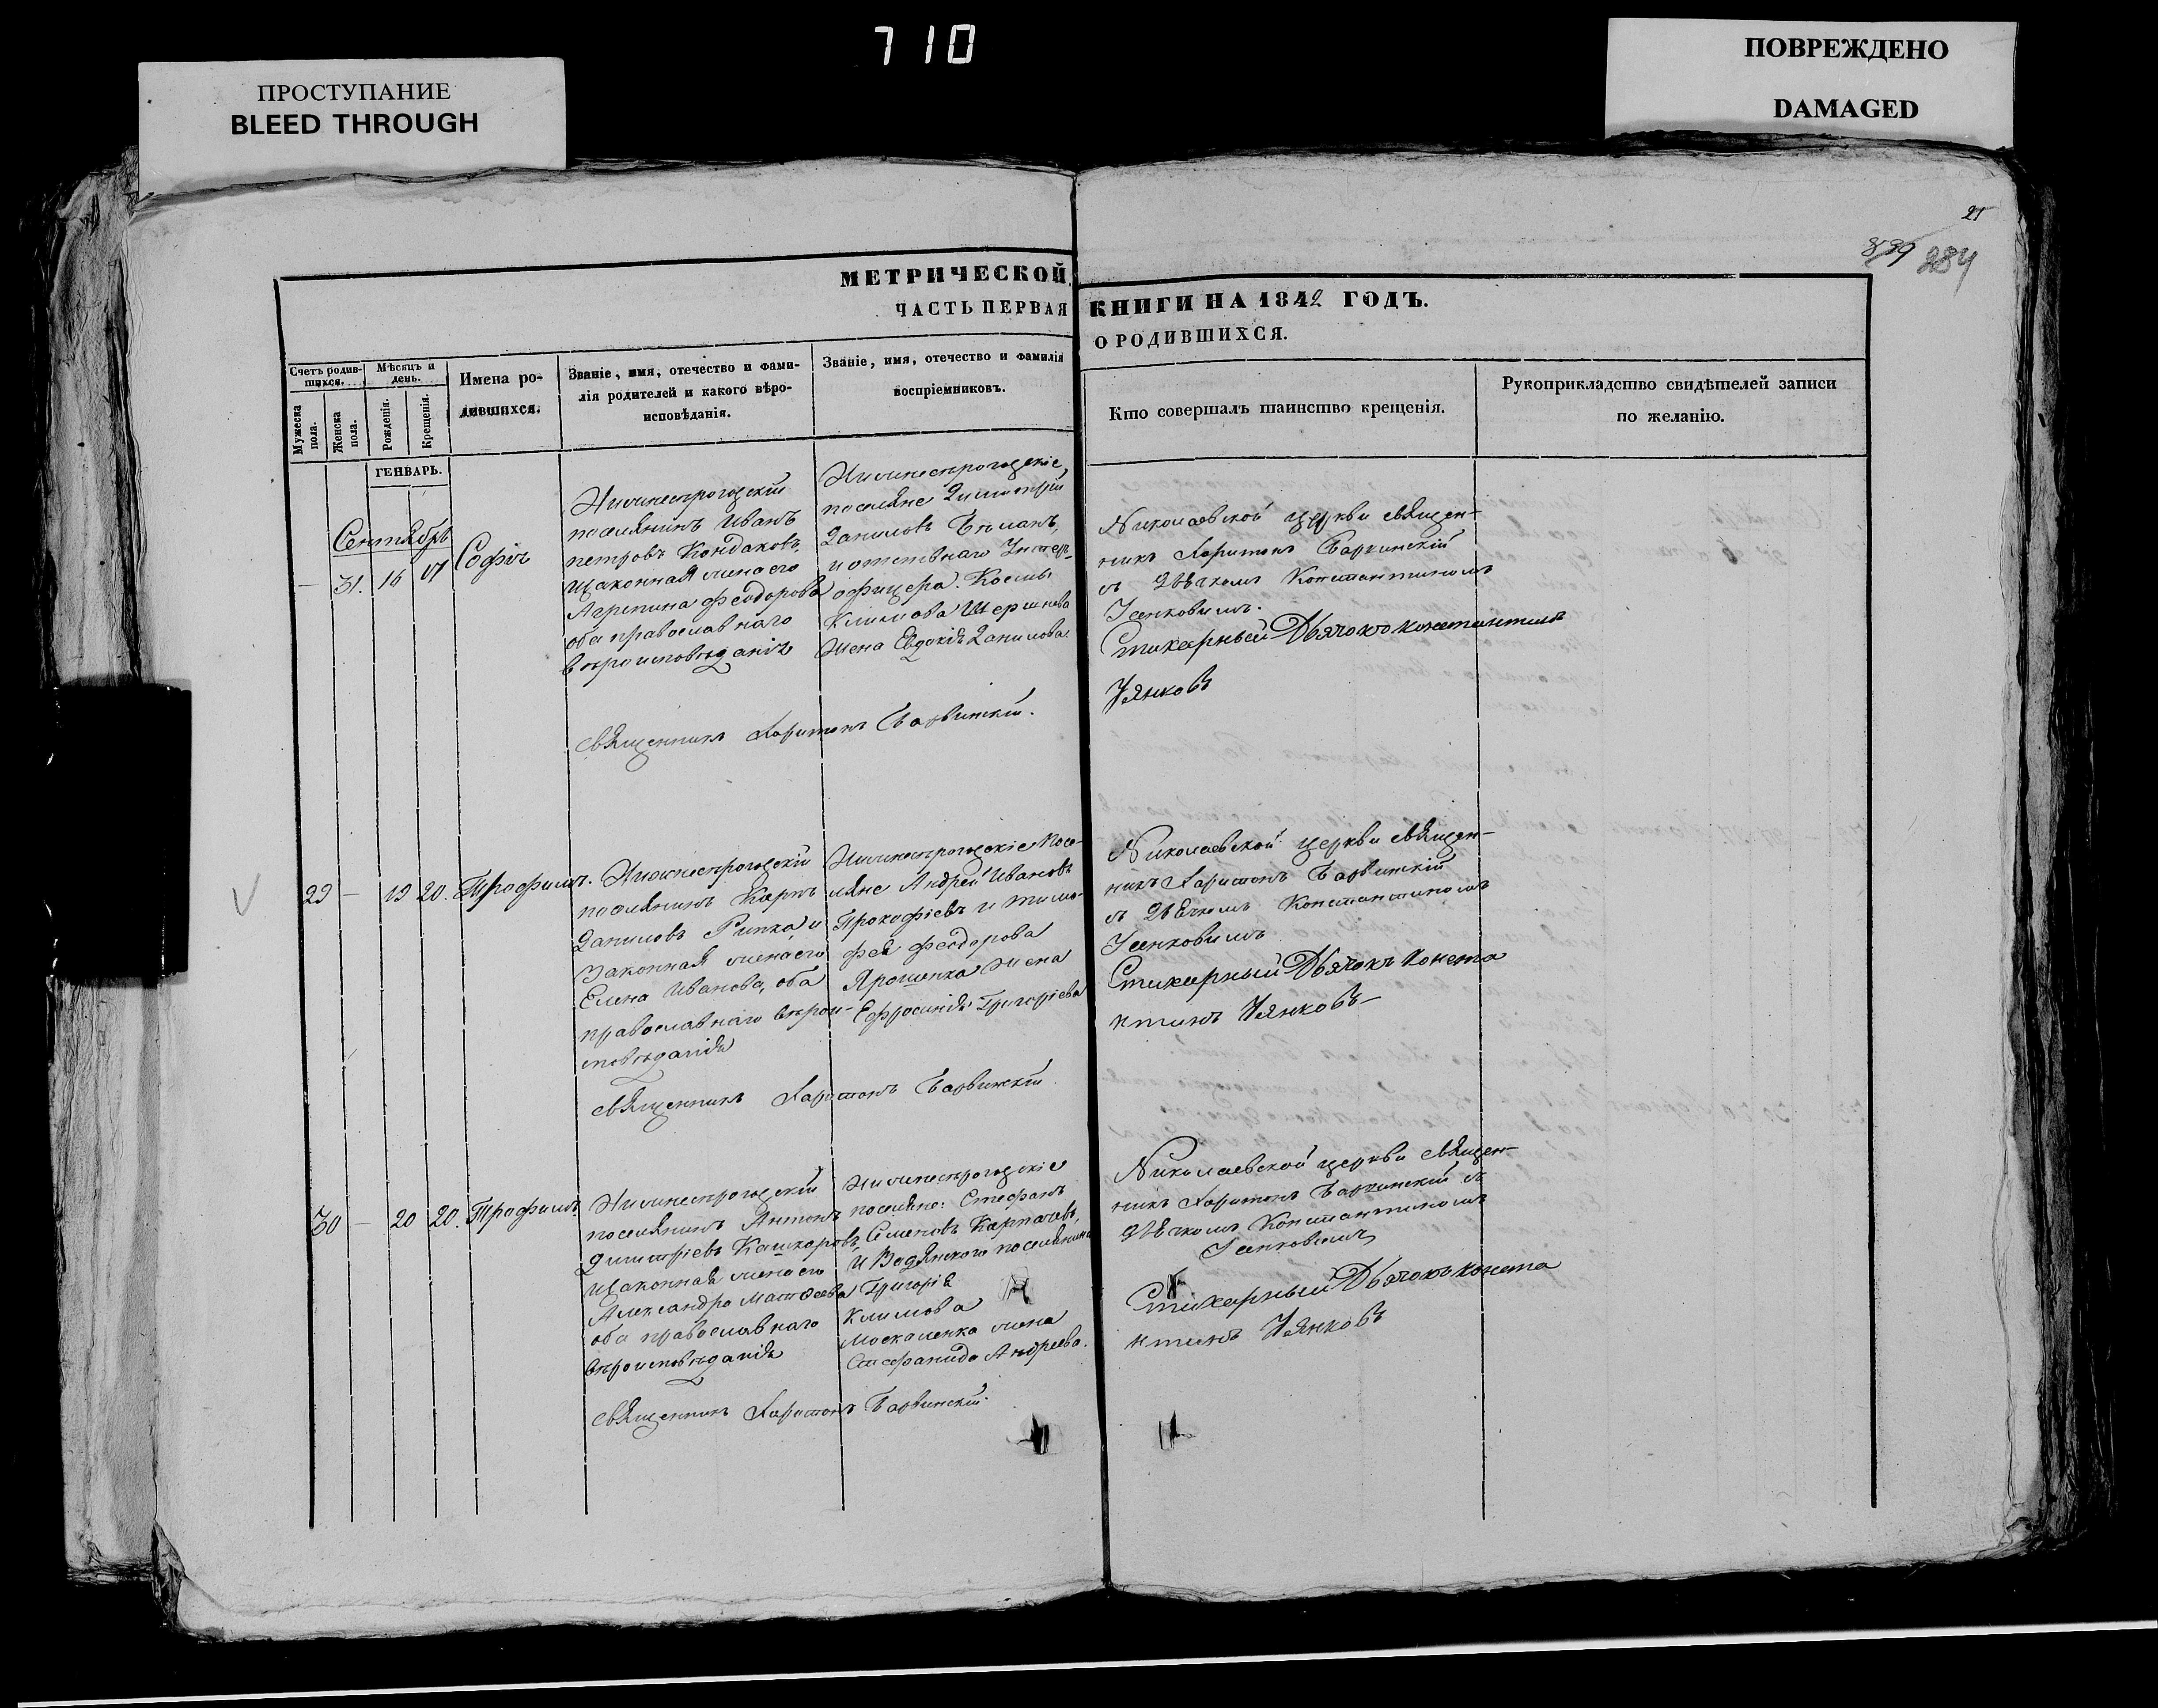 710
ПРОСТУПАНИЕ
BLEED THROUGH
ПОВРЕЖДЕНО
DAMAGED
21
284
МЕТРИЧЕСКОЙ
КНИГИ НА 1842 ГОДЪ.
ЧАСТЬ ПЕРВАЯ
О РОДИВШИХСЯ.
Счетъ родив-
шихся.
Мужеска пола.
Женска пола.
Мѣсяцъ и
день.
Рожденія.
Крещенія.
Имена ро-
дившихся.
Званіе, имя, отечество и фами-
лія родителей и какого вѣро-
исповѣданія.
Званіе, имя, отечество и фамилія
воспріемниковъ.
Кто совершалъ таинство крещенія.
Рукоприкладство свидѣтелей записи
по желанію.
ГЕНВАРЬ.
Сентябрь
— 31. 16 17 Софія
Нижнесѣрогозскій
поселянинъ Иванъ
петровъ Кондаковъ,
изаконная жена его
Агрепина Феодорова
оба православнаго
вѣроисповѣданія
Нижнесѣрогозскіе,
поселяне Димитрій
Даниловъ
и отставнаго Унтеръ-
офицера Космы
Климова
Жена Евдокія Данилова.
Николаевской церкви священ-
никъ Харитонъ Барвинскій
съ дьячкомъ Константиномъ
Усенковимъ.
Стихарный Дьячокъ константинъ
Усянковъ
священникъ Харитонъ Барвинскій.
29 — 19 20. Трофимъ.
Нижнесѣрогозскій
поселянинъ Карпъ
Даниловъ Рипка, и
Законная жена его
Елена Иванова, оба
православнаго вѣрои-
сповѣданія
Нижнесѣрогозскіе Посе-
ляне Андрей Ивановъ
Прокофіевъ и тимо-
фея феодорова
Ярошенка Жена
Ефросинія Григоріева
Николаевской церкви священ-
никъ Харитонъ Барвинскій
съ дьячкомъ Константиномъ
Усенковимъ
Стихарный Дьячокъ Конста
нтинъ Усянковъ
священникъ Харитонъ Барвинскій.
30 — 20 20. Трофимъ.
Нижнесѣрогозскій
поселянинъ Антонъ
Димитріевъ Кашкаровъ,
изаконная жена его
Александра Матѳеева
оба православнаго
вѣроисповѣданія
Нижнесѣрогозскіе
поселяне: Стефанъ
Семеновъ Карпачевъ,
и Водянского поселянина
Григорія
Климова
Москаленка жена
Стефанида Андреева.
Николаевской церкви священ-
никъ Харитонъ Барвинскій съ
дьячкомъ Константиномъ
Усенковимъ
Стихарный Дьячокъ конста
нтинъ Усянковъ
священникъ Харитонъ Барвинскій.